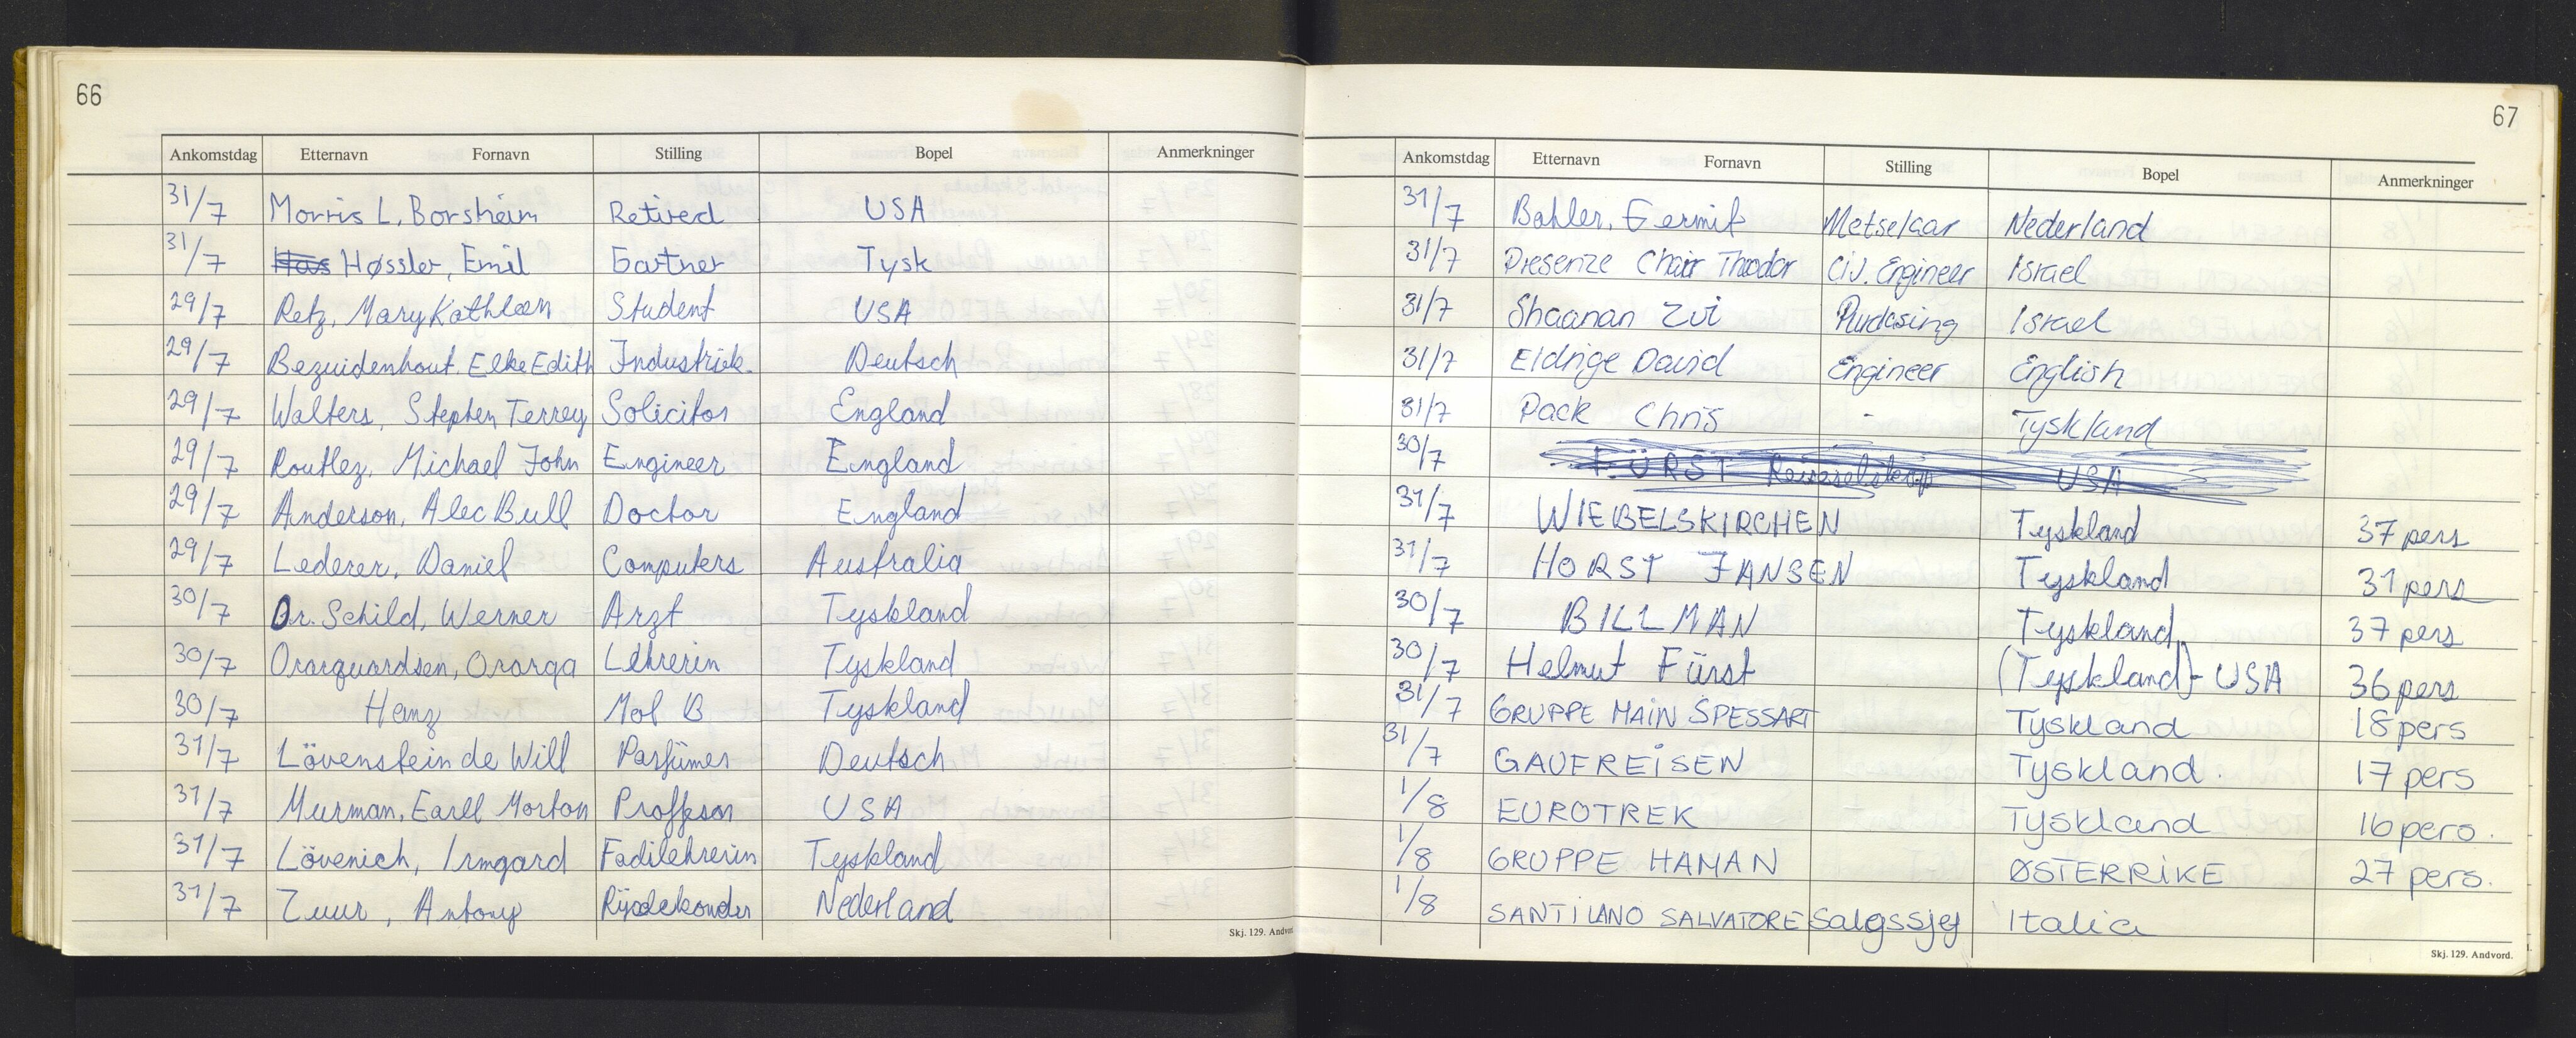 66
Ankomstdag Etternavn Fornavn Stilling Bopel Anmerkninger
31/7 Morris L. Borsheim Retired USA
31/7 Høssler, Emil Gartner Tysk
29/7 Retz, Mary Kathleen Student USA
29/7 Bezuidenhout, Elke Edith Industriek. Deutsch
29/7 Walters, Stephen Terrey Solicitor England
29/7 Routlez, Michael John Engineer England
29/7 Anderson, Alec Bull Doctor England
29/7 Lederer, Daniel Computers Australia
30/7 Dr. Schild, Werner Arzt Tyskland
30/7 Lehrerin Tyskland
30/7 Heinz Mol B Tyskland
31/7 Lövenstein de Will Parfümer Deutsch
31/7 Murman, Earll Morton Proffesor USA
31/7 Lövenich, Irmgard Fadilehrerin Tyskland
31/7 Zuur, Antony Nederland
Skj. 129. Andvord
67
Ankomstdag Etternavn Fornavn Stilling Bopel Anmerkninger
31/7 Bahler, Germit Metselaar Nederland
31/7 Presenze Chair Theodor Civ. Engineer Israel
31/7 Shaanan Zvi Purdasing Israel
31/7 Eldrige David Engineer English
31/7 Pack Chris - Tyskland
30/7 FÜRST Reiseselskap USA
31/7 WIEBELSKIRCHEN Tyskland 37 pers
31/7 HORST JANSEN Tyskland 31 pers
30/7 BILLMAN Tyskland 37 pers
30/7 Helmut Fürst (Tyskland)- USA 36 pers
31/7 GRUPPE MAIN SPESSART Tyskland 18 pers
31/7 GAUFREISEN Tyskland. 17 pers
1/8 EUROTREK Tyskland 16 pers.
1/8 GRUPPE HAMAN ØSTERRIKE 27 pers.
1/8 SANTILANO SALVATORE Salgssjef Italia
Skj. 129. Andvord.